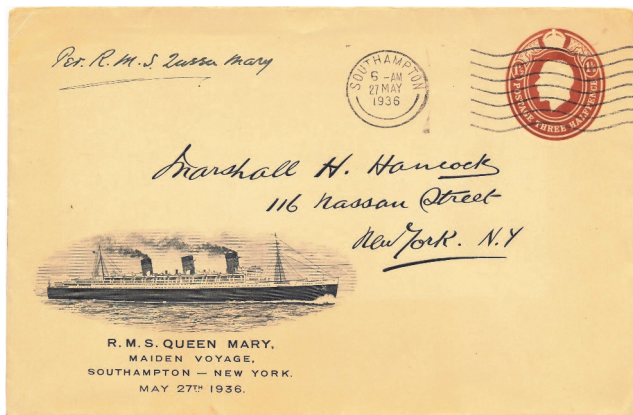 Per. R.M.S. Queen Mary
SOUTHAMPTON
6-AM
27 MAY
1936
POSTAGE THREE HALFPENCE
Marshall H. Hancock
116 Nassau Street
New York. N.Y
R.M.S. QUEEN MARY,
MAIDEN VOYAGE,
SOUTHAMPTON — NEW YORK.
MAY 27TH 1936.